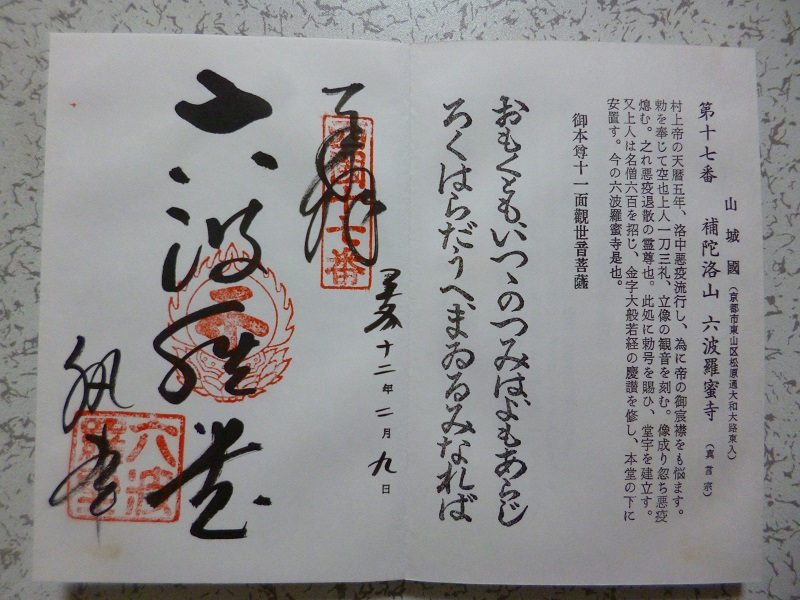 山城國(京都市東山区松原通大和大路東入)
第十七番 補陀洛山 六波羅蜜寺(真言宗)
村上帝の天暦五年、洛中悪疫流行し、為に帝の御宸襟をも悩ます。
勅を奉じて空也上人一刀三礼、立像の観音を刻む。像成り忽ち悪疫
熄む。之れ悪疫退散の霊尊也。此処に勅号を賜ひ、堂宇を建立す。
又上人は名僧六百を招じ、金字大般若経の慶讃を修し、本堂の下に
安置す。今の六波羅蜜寺是也。
御本尊十一面觀世音菩薩
おもくともいつゝのつみはよもあらじ
ろくはらだうへまゐるみなれば
奉拝
西国十七番
平成十二年二月九日
六波羅堂
執事